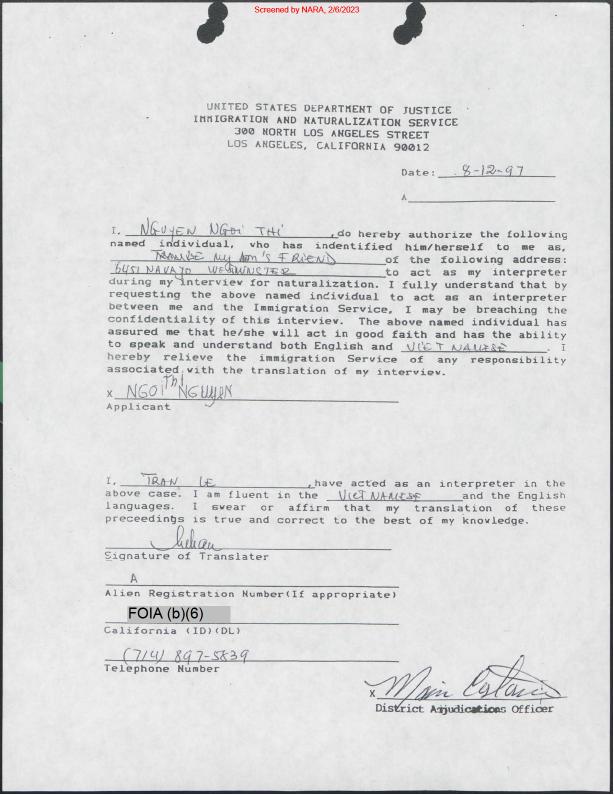 Screened by NARA, 2/6/2023
UNITED STATES DEPARTMENT OF JUSTICE
IMMIGRATION AND NATURALIZATION SERVICE
300 NORTH LOS ANGELES STREET
LOS ANGELES, CALIFORNIA 90012
Date: 8-12-97
A
I, NGUYEN NGOI THI ,do hereby authorize the following
named individual, who has indentified him/herself to me as,
MY SON'S FRIEND of the following address:
6451 NAVAJO WESTMINSTER to act as my interpreter
during my interview for naturalization. I fully understand that by
requesting the above named individual to act as an interpreter
between me and the Immigration Service, I may be breaching the
confidentiality of this interview. The above named individual has
assured me that he/she will act in good faith and has the ability
to speak and understand both English and VIET NAMESE . I
hereby relieve the immigration Service of any responsibility
associated with the translation of my interview.
X NGOI Thi NGUYEN
Applicant
I, TRAN LE ,have acted as an interpreter in the
above case. I am fluent in the VIET NAMESE and the English
languages. I swear or affirm that my translation of these
preceedings is true and correct to the best of my knowledge.
Signature of Translater
A
Alien Registration Number(If appropriate)
FOIA (b)(6)
California (ID)(DL)
(714) 897-5839
Telephone Number
X
District Adjudications Officer